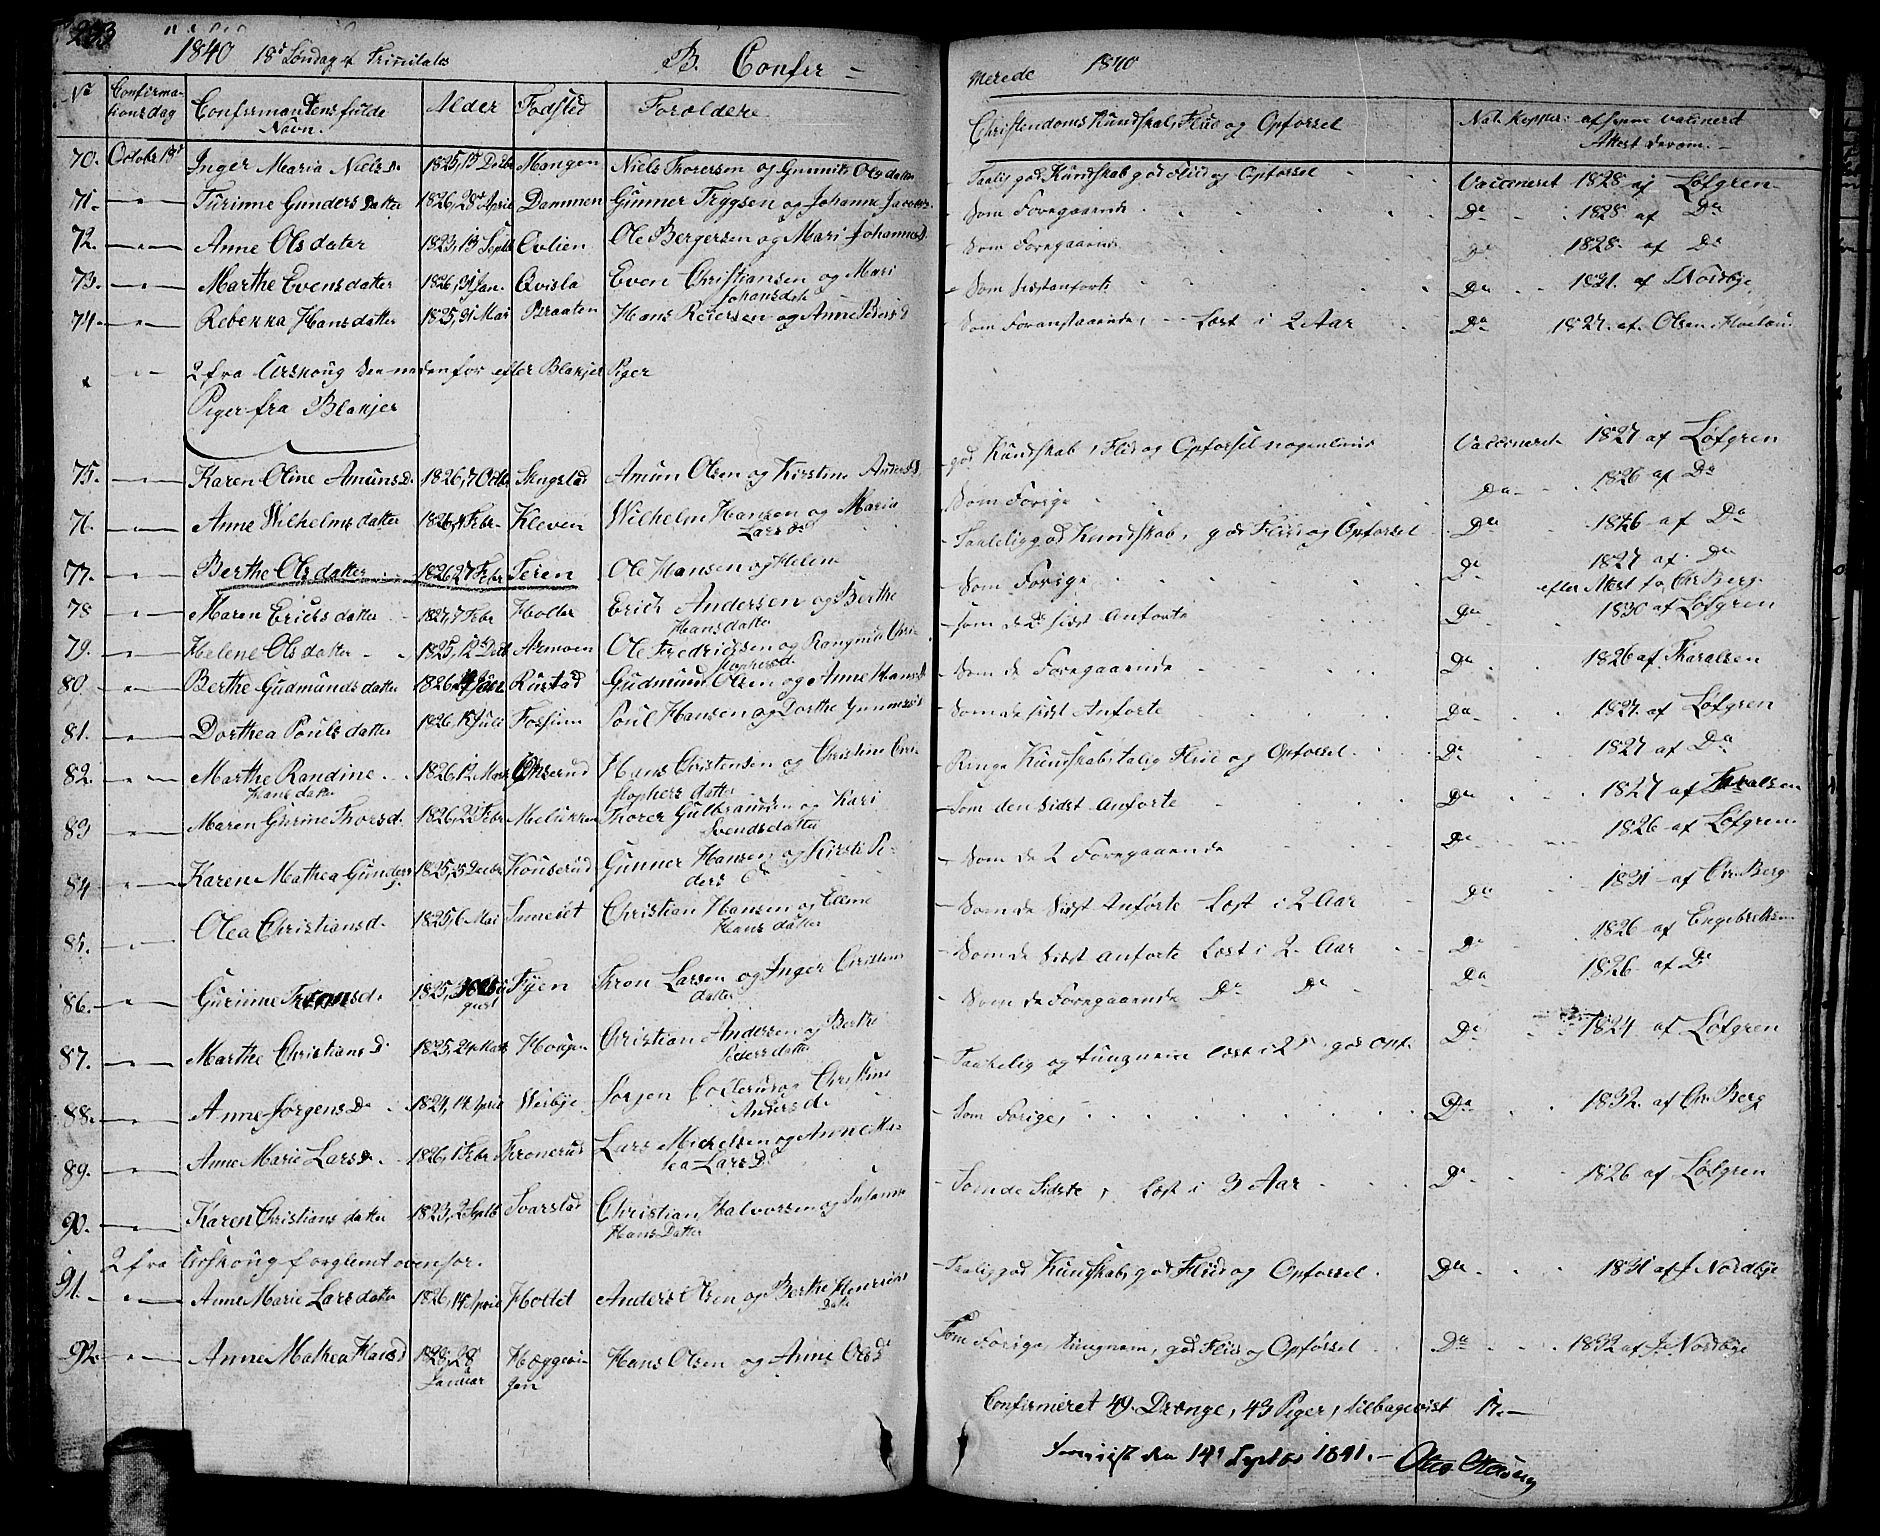 233
1840 18d Søndag ef Trinitatis B. Confir =
merede 1840
No Confirmationsdag Confirmandens fulde Navn. Alder Fødsted Forældere
Christendoms Kundskab, Fliid og Opførsel Nat. Kopper af hvem vaccineret Attest derom.
70. Octobr Inger Maria Niels D. 1825, Mangen Niels Thoresen og Olsdatter
Taalig god Kundskab god Fliid og Opførsel Vaccineret 1828 af Løfgren
71. Gunders Datter 1826, 28 April Dammen Gunner Trygsen og Johanne
Som Foregaaende Do 1828 af Do
72. Anne Olsdatter 1823, 13 Septb Ovlien Ole Bergersen og Mari Johannesd.
Som Foregaaende Do 1828 af Do
73. Marthe Evensdatter 1826, 31 Jan. Qvisla Even Christiansen og Mari Johansdatt
Som sidstanførte Do 1831. af Nordbye
74. Rebekka Hansdatter 1825, 31 Mai Braaten Hans Reiersen og Anne Peders d
Som Foranstaaende, Læst i 2 Aar Do 1827. af Olsen
2 fra Urskoug see nedenfor efter Blakjer Piger
Piger fra Blakjer
75. Karen Oline Amunds D. 1826, 7 Octbr Amun Olsen og Kirstine Andersd
god Kundskab, Fliid og Opførsel nogenlund Vaccineret 1827 af Løfgren
76. Anne Wilhelmsdatter 1826, Febr. Kleven Wilhelm Hansen og Maria Larsd
Som Forrige Do 1826 af Do
77. Berthe Olsdatter 1826, 27 Febr Teien Ole Hansen og Helene
Taalelig god Kundskab, god Fliid og Opførsel Do 1826 af Do
78 Maren Erichsdatter 1827, 7 Febr Holter Erich Andersen og Berthe Hansdatter
Som Forige Do 1827 af Do efter Attest fra Chr. Berg
79. Helene Olsdatter 1825, 12 Armoen Ole Fredrichsen og
som de 2 sidst Anførte Do 1830 af Løfgren
80. Berthe Gudmundsdatter 1826 Rustad Gudmund Olsen og Anne Hansd
Som de Foregaaende Do 1826 af Tharalsen
81. Dorthea Poulsdatter 1826 Juli Fossum Poul Hansen og Dorthe
Som de sidst Anførte Do 1827. af Løfgren
82. Marthe Randine Hansdatter 1826, 12 Hans Christensen og Christine
Ringe Kundskab, talig Fliid og Opførsel Do 1827 af Do
83 Maren Gurine Thorsd. 1826, 22 Febr Thorer Gulbrandsen og Kari Svendsdatter
Som den sidst anførte Do 1827 af Tharalsen
84 Karen Mathea Gunders D. 1825, Decbr Kouserud Gunner Hansen og Kirsti Peders D
Som de 2 Foregaaende Do 1826 af Løfgren
85. Olea Christiansd. 1825, 6 Mai Christian Hansen og Hansdatter
Som de Sidst Anførte Læst i 2 Aar Do 1831 af Chr. Berg
86. Gurine Tronsd. 1825, August Tyen Thron Larsen og Inger datter
Som de Sidst anførte Læst i 2 Aar Do 1826 af Engebretsen
87. Marthe Christians D. 1825, 24 Marts Hougen Christian Andersen og Berthe Pedersdatter
Som de Foregaaende Do Do Do 1826 af Do
88. Anne Jørgens D. 1824, 14 April Weibye Jørgen og Christine Andersd.
Taalelig og tungnem læst i god Opf. Do 1824 af Løfgren
89. Anne Marie Lars D. 1826, Febr Tronerud Lars Michelsen og Anne Mathea Lars D
Som Forige, Do 1832 af Chr. Berg
90. Karen Christiansdatter 1823, 2 Septb Svarstad Christian Halvorsen og Susanne Hans Datter
Som de Sidste, Læst i 3 Aar Do 1826 af Løfgren
2 fra Urskoug forglemt ovenfor.
91. Anne Marie Larsdatter 1826, 14 April Hollet Anders Olsen og Berthe Datter
Taalig god Kundskab, god Fliid og Opførsel. Do 1831 af J Nordbye
92. Anne Mathea Hansd 1823, 28 Januar Hans Olsen og Anne Olsd
Som Forige, tungnem, god Fliid og Opførsel Do 1832 af J. Nordbye
Confirmeret 49. Drænge, 43 Piger, tilbagevist 17.
den 14d Septbr 1841.